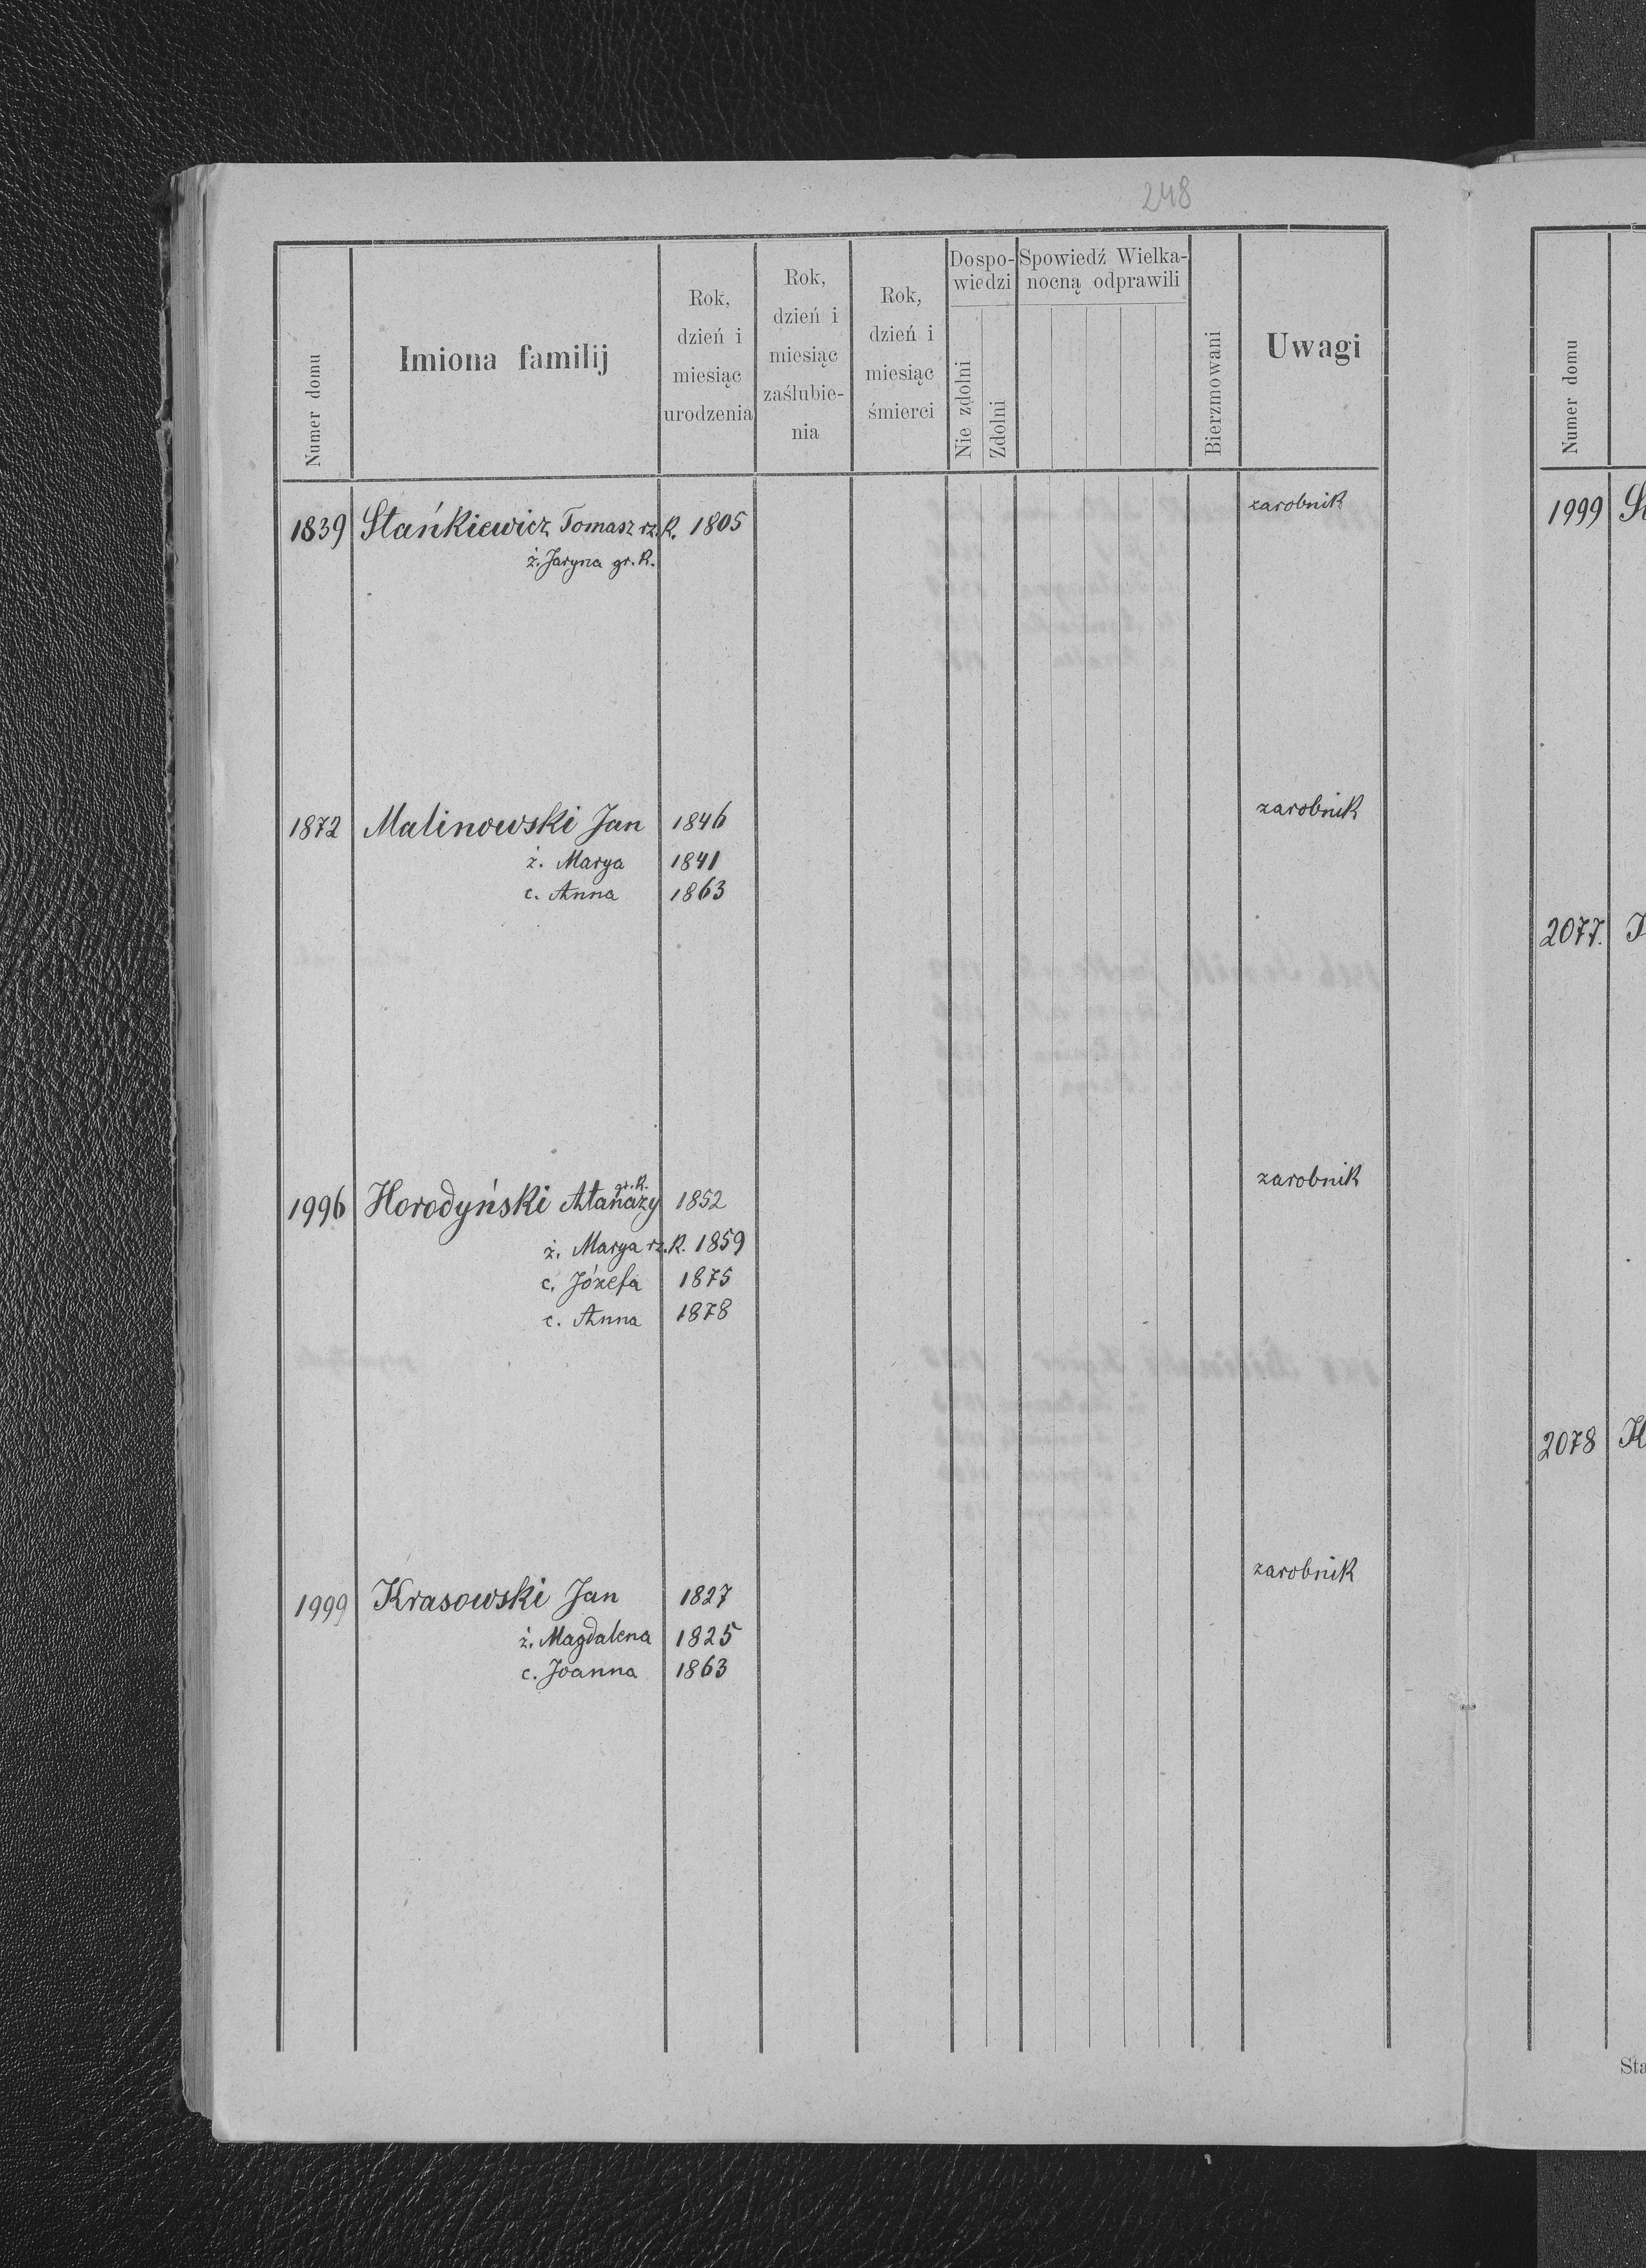 248
Numer domu
Imiona familij
Rok, dzień i miesiąc urodzenia
Rok, dzień i miesiąc zaślubie-nia
Rok, dzień i miesiąc śmierci
Dospo-wiedzi
Nie zdolni
Zdolni
Spowiedź Wielka-nocną odprawili
Bierzmowani
Uwagi
1839 Stańkiewicz Tomasz rz.k. 1805 zarobnik
ż. Jaryna gr.k.
1872 Malinowski Jan 1846 zarobnik
ż. Marya 1841
c. Anna 1863
1996 Horodyński Atanazy gr.k. 1852 zarobnik
ż. Marya rz.k. 1859
c. Józefa 1875
c. Anna 1878
1999 Krasowski Jan 1827 zarobnik
ż. Magdalena 1825
c. Joanna 1863
Numer domu
1999
2077.
2078
Sta